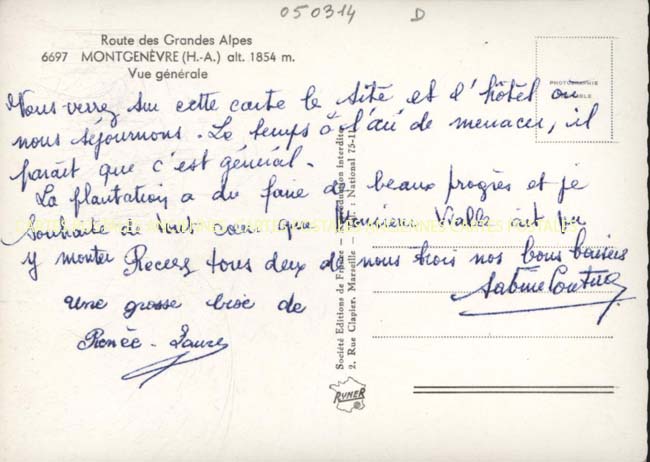 050314 D
Route des Grandes Alpes
6697 MONTGENÈVRE (H.-A.) alt. 1854 m.
Vue générale
PHOTOGRAPHIE
Vous verrez sur cette carte le site et l'hôtel où
nous séjournons. Le temps à l'air de menacer, il
parait que c'est général.
La plantation a du faire de beaux progrès et je
souhaite de tout cœur que Monsieur ait pu
y monter Recevez tous deux de nous trois nos bons baisers
Sabine
Une grosse bise de
Renée - Laure
Société Editions de France - Marseille -
2, Rue Clapier, Marseille - : National 75-11
RYNER
CARTES POSTALES ANCIENNES CARTES POSTALES ANCIENNES CARTES POSTALES